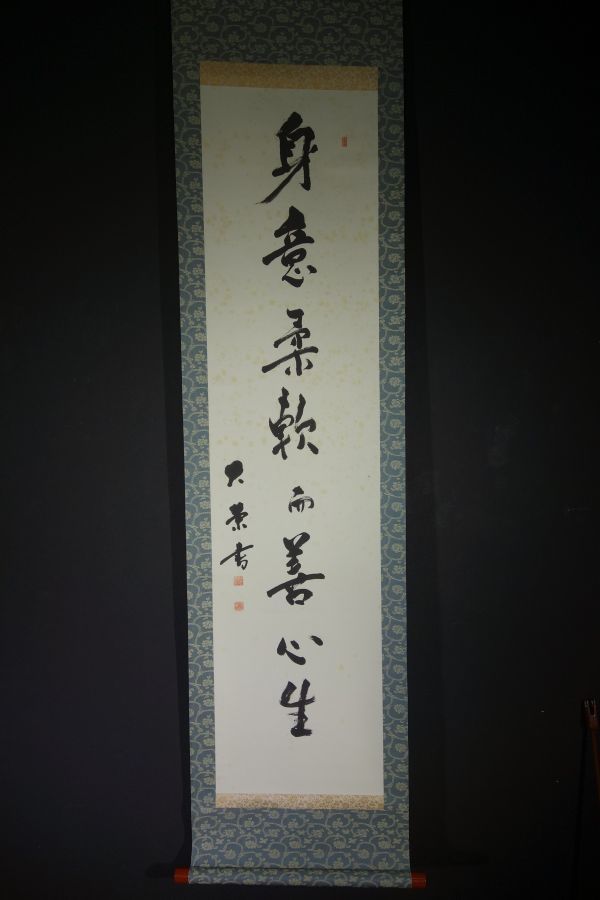 身意柔軟而善心生
大榮書